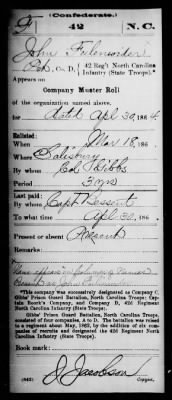 (Confederate.)
F 42 N.C.
John Fulenwider
Pvt, Co. D, 42 Reg't North Carolina
Infantry (State Troops).
Appears on
Company Muster Roll
of the organization named above,
for dated Apl 30, 1864.
Enlisted:
When Mar 18, 186
Where Salisbury
By whom Col Gibbs
Period 3 yrs
Last paid:
By whom Capt Dessent
To what time Apl 30, 186
Present or absent Present
Remarks:
Name appears in column of names
present as John
*This company was successively designated as Company C,
Gibbs' Prison Guard Battalion, North Carolina Troops; Cap-
tain Roark's Company, and Company D, 42d Regiment
North Carolina Infantry (State Troops).
Gibbs' Prison Guard Battalion, North Carolina Troops,
consisted of four companies, A to D. The battalion was raised
to a regiment about May, 1862, by the addition of six com-
panies of recruits, and designated the 42d Regiment North
Carolina Infantry (State Troops).
Book mark:
(642) J Jacobson
Copyist.